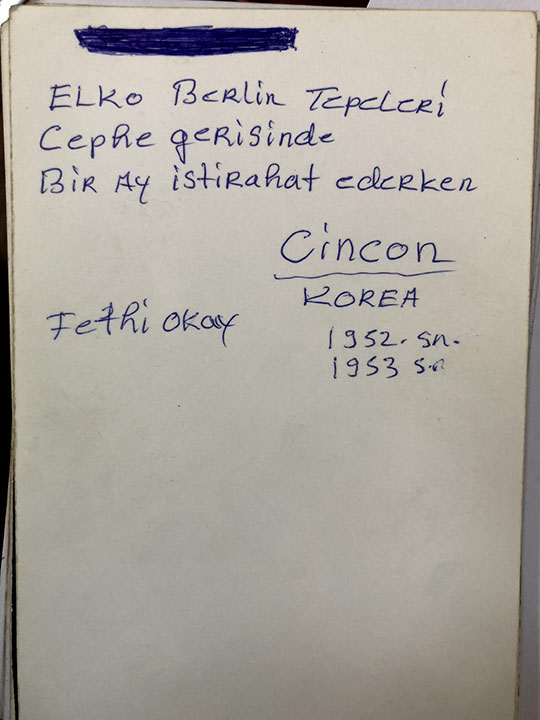 ELKO Berlin Tepeleri
Cephe gerisinde
Bir Ay istirahat ederken
Cincon
KOREA
Fethi Okay
1952. sn.
1953 sn